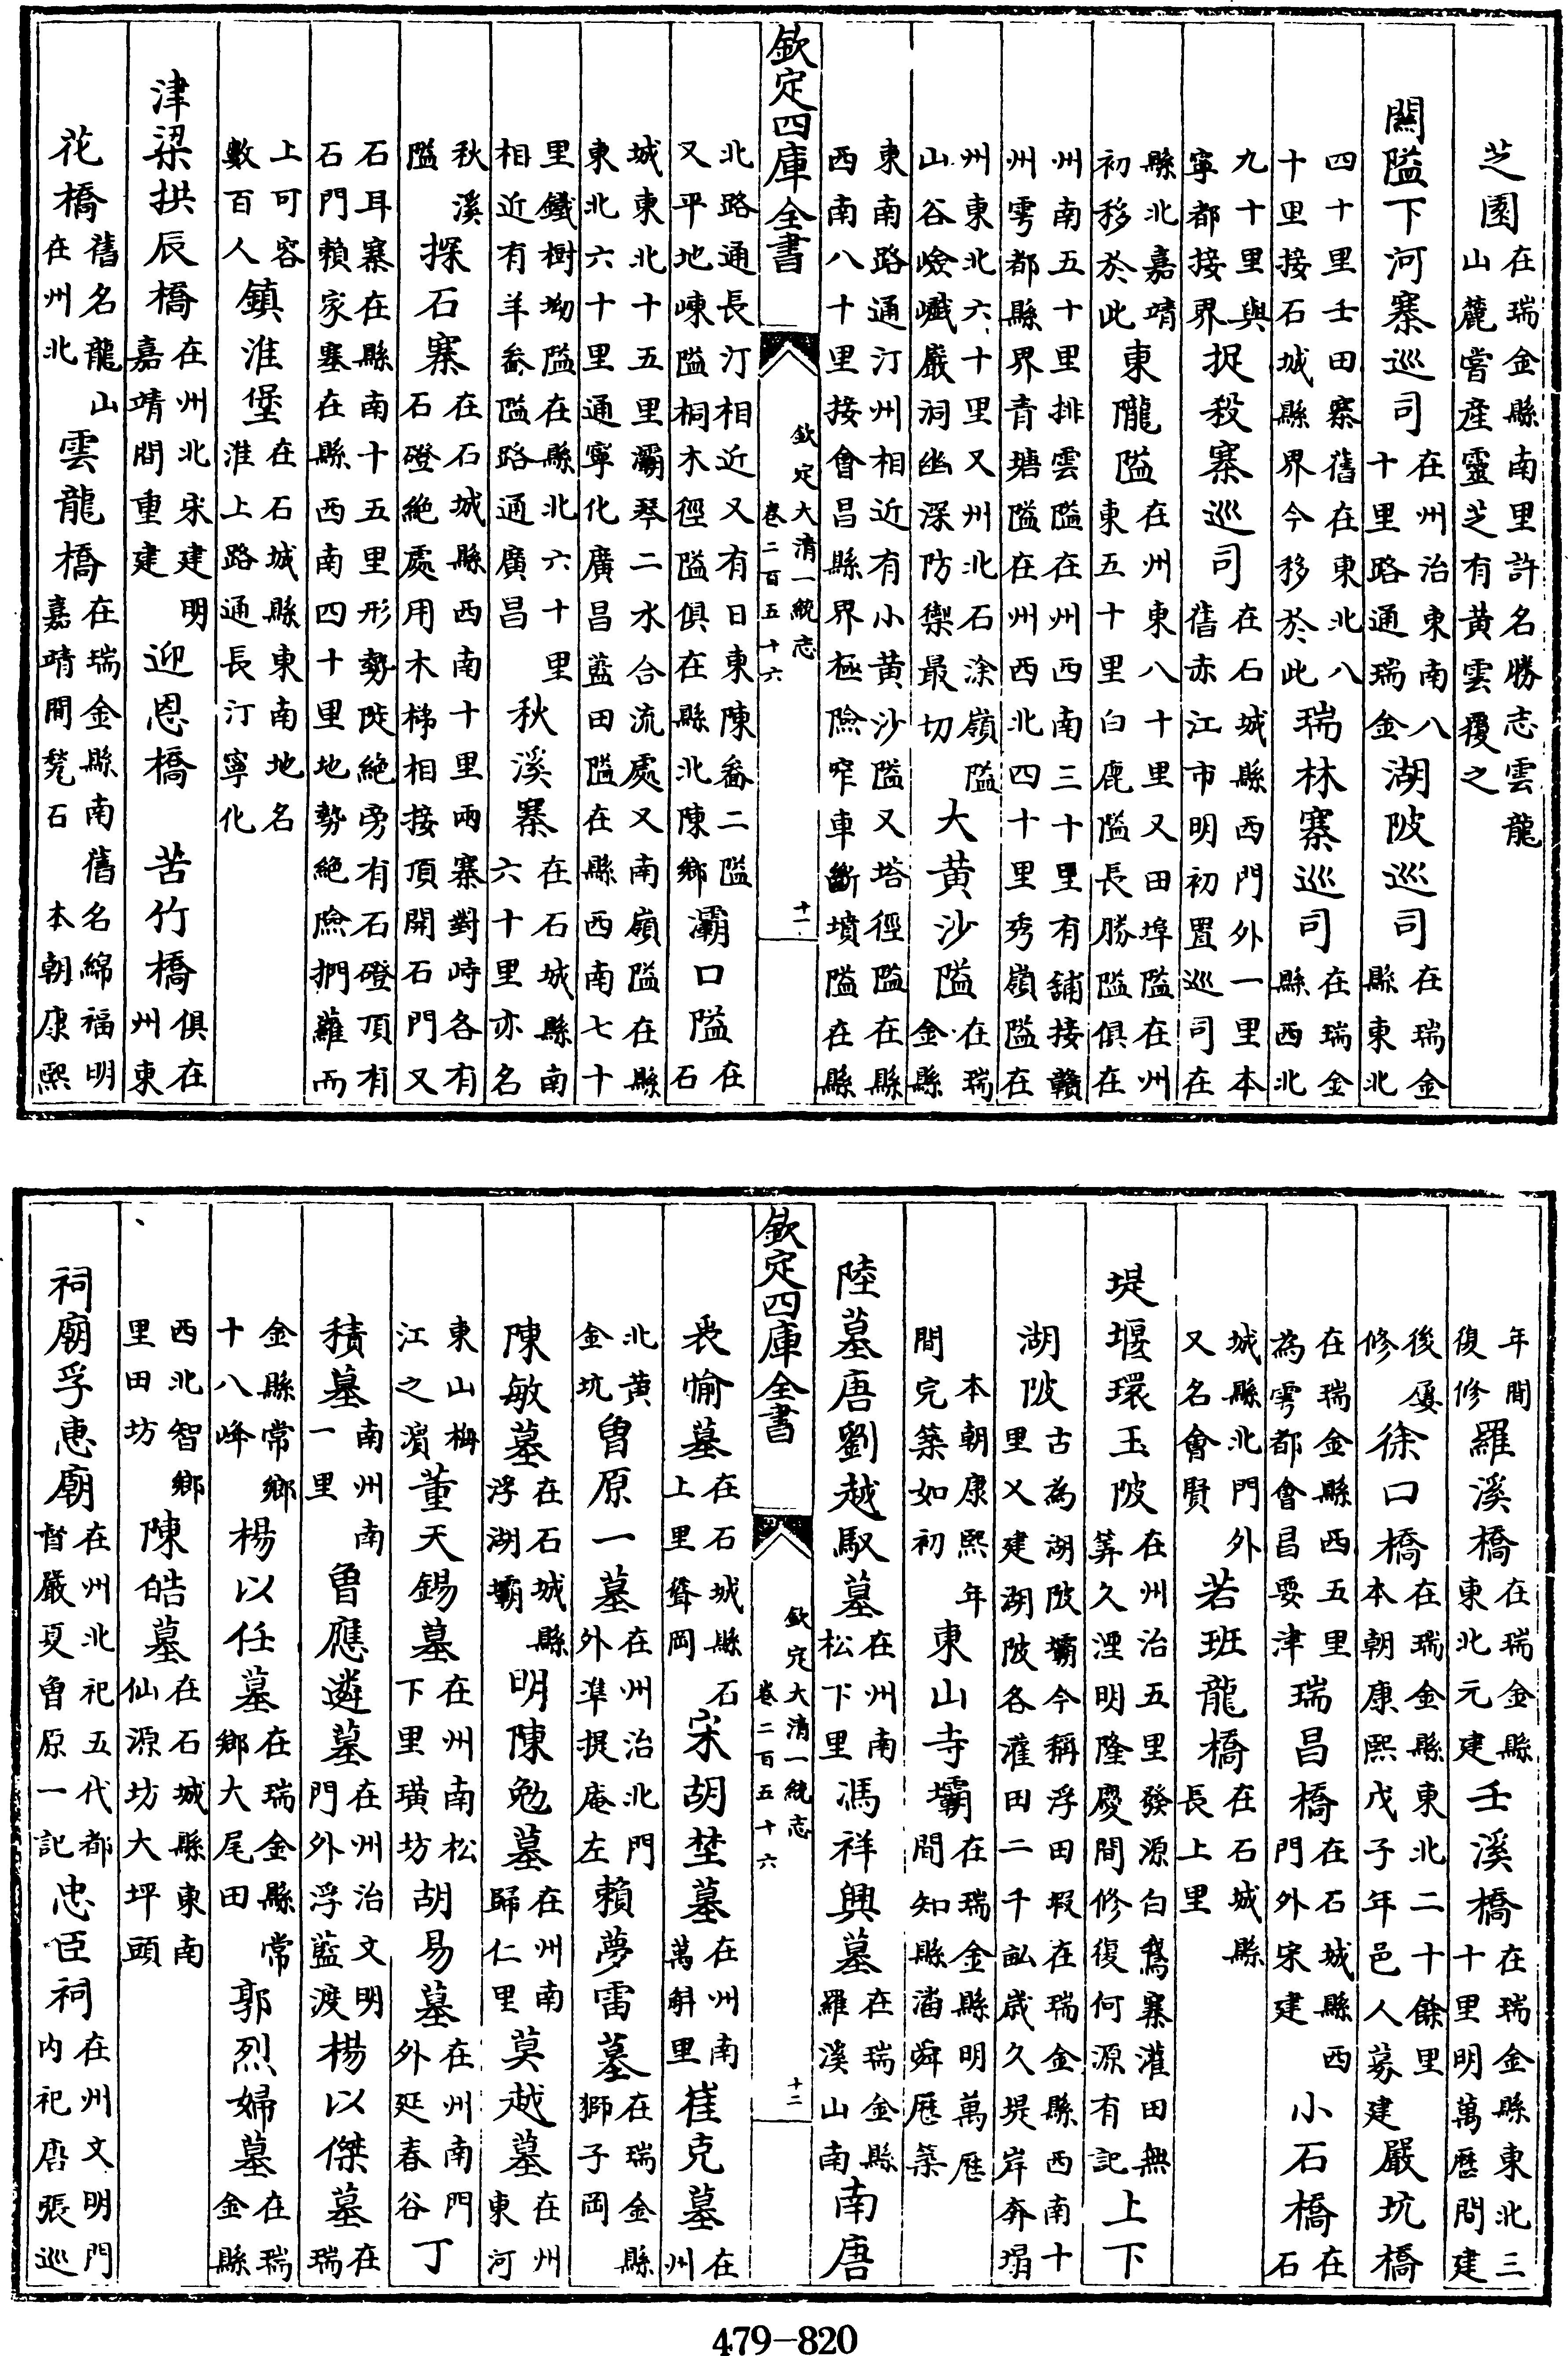 芝園在瑞金縣南里許名勝志雲龍山麓嘗産靈芝有黄雲覆之
闗隘下河寨巡司在州治東南八十里路通瑞金湖陂巡司在瑞金縣東北
四十里壬田寨舊在東北八十里接石城縣界今移於此瑞林寨巡司在瑞金縣西北
九十里與寧都接界捉殺寨巡司在石城縣西門外一里本舊赤江市明初置巡司在
縣北嘉靖初移於此東隴隘在州東八十里又田埠隘在州東五十里白鹿隘長勝隘俱在
州南五十里排雲隘在州西南三十里有舖接贛州雩都縣界青塘隘在州西北四十里秀嶺隘在
州東北六十里又州北石涂嶺隘山谷嶮巇巖洞幽深防禦最切大黄沙隘在瑞金縣
東南路通汀州相近有小黄沙隘又塔徑隘在縣西南八十里接會昌縣界極險窄車斷墳隘在縣
欽定四庫全書 欽定大清一統志卷二百五十六 十一
北路通長汀相近又有日東陳畲二隘又平地崠隘桐木徑隘俱在縣北陳鄉灞口隘在石
城東北十五里灞琴二水合流處又南嶺隘在縣東北六十里通寧化廣昌藍田隘在縣西南七十
里鐵樹坳隘在縣北六十里相近有羊畲隘路通廣昌秋溪寨在石城縣南六十里亦名
秋溪隘探石寨在石城縣西南十里兩寨對峙各有石磴絶處用木梯相接頂開石門又
石耳寨在縣南十五里形勢陡絶旁有石磴頂有石門賴家寨在縣西南四十里地勢絶險捫蘿而
上可容數百人鎮淮堡在石城縣東南地名淮上路通長汀寧化
津梁拱辰橋在州北宋建明嘉靖間重建迎恩橋 苦竹橋俱在州東
花橋舊名龍山在州北雲龍橋在瑞金縣南舊名綿福明嘉靖間甃石本朝康熙
年間復修羅溪橋在瑞金縣東北元建壬溪橋在瑞金縣東北三十里明萬厯間建
後屡修徐口橋在瑞金縣東北二十餘里本朝康熙戊子年邑人募建嚴坑橋
在瑞金縣西五里為雩都會昌要津瑞昌橋在石城縣西門外宋建小石橋在石
城縣北門外又名會賢若班龍橋在石城縣長上里
堤堰環玉陂在州治五里發源白鵞寨灌田無筭久湮明隆慶間修復何源有記上下
湖陂古為湖陂壩今稱浮田叚在瑞金縣西南十里乂建湖陂各灌田二千畆歲久堤岸奔塌
本朝康熙年間完築如初東山寺壩在瑞金縣明萬厯間知縣潘舜厯築
陸墓唐劉越馭墓在州南松下里馮祥興墓在瑞金縣羅溪山南南唐
欽定四庫全書 欽定大清一統志卷二百五十六 十二
裴愉墓在石城縣石上里聳岡宋胡埜墓在州南萬斛里崔克墓在州
北黄金坑曾原一墓在州治北門外準提庵左賴夢雷墓在瑞金縣獅子岡
陳敏墓在石城縣浮湖壩明陳勉墓在州南歸仁里莫越墓在州東河
東山梅江之濵董天錫墓在州南松下里璜坊胡易墓在州南門外延春谷丁
積墓南州南一里曾應遴墓在州治文明門外浮藍渡楊以傑墓在瑞
金縣常鄉十八峰楊以任墓在瑞金縣常鄉大尾田郭烈婦墓在瑞金縣
西北智鄉里田坊陳皓墓在石城縣東南仙源坊大坪頭
祠廟孚惠廟在州北祀五代都督嚴㚆曾原一記忠臣祠在州文明門内祀唐張巡
479-820